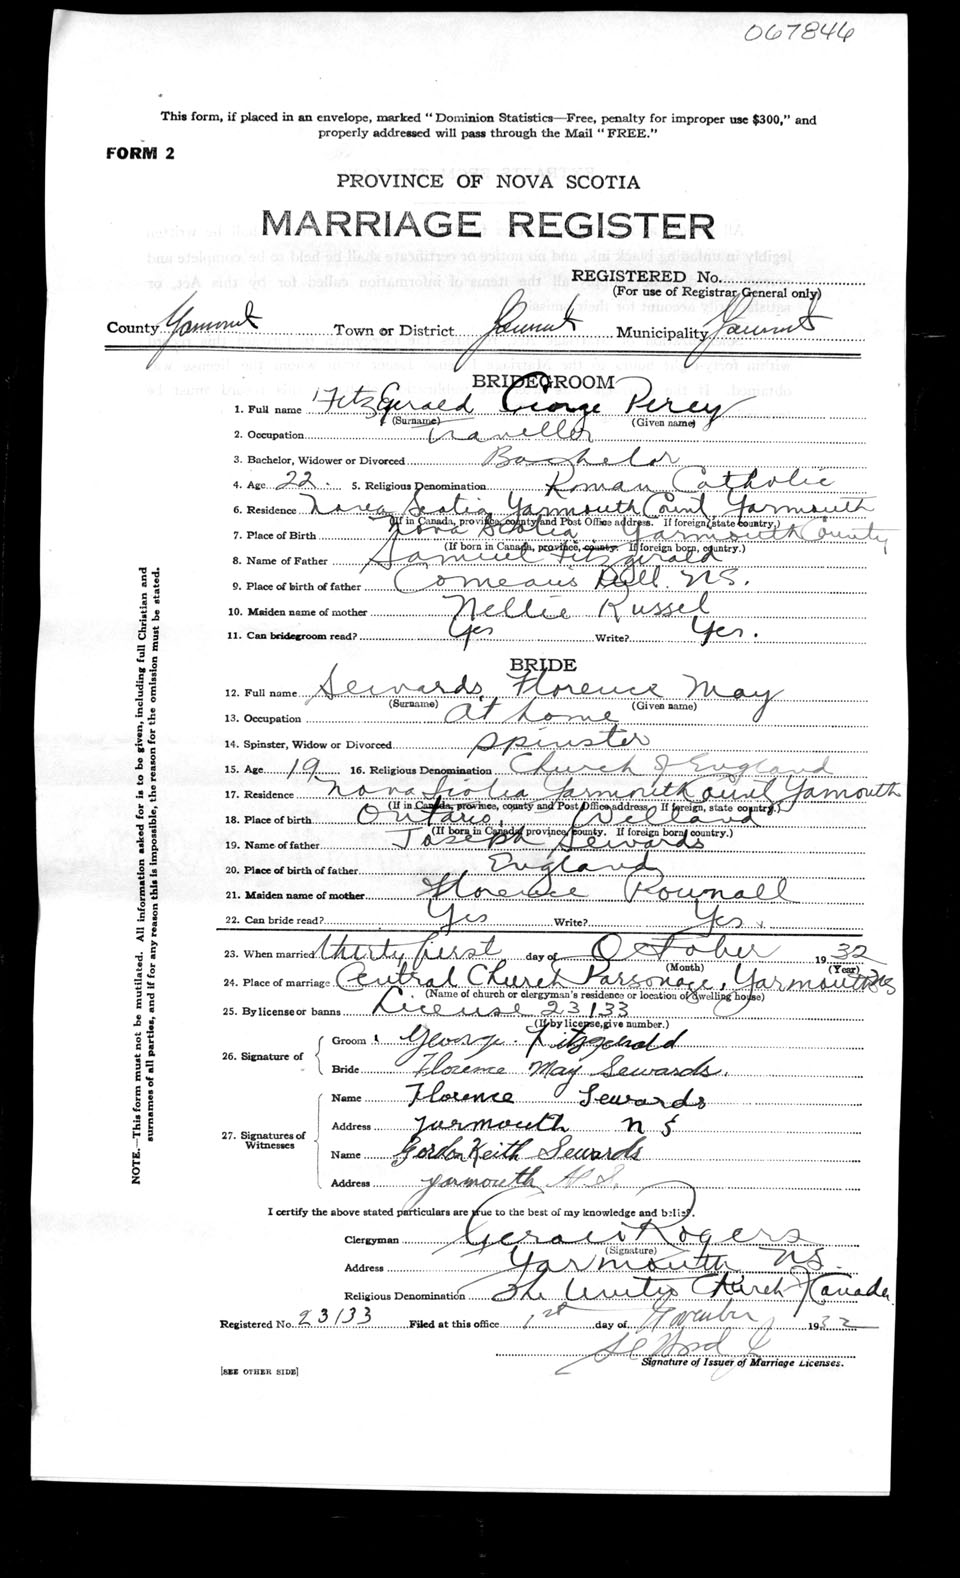 067846
This form, if placed in an envelope, marked "Dominion Statistics—Free, penalty for improper use $300," and
properly addressed will pass through the Mail "FREE."
FORM 2
PROVINCE OF NOVA SCOTIA
MARRIAGE REGISTER
REGISTERED No.
(For use of Registrar General only)
County Yarmouth Town or District Yarmouth Municipality Yarmouth
BRIDEGROOM
1. Full name FitzGerald George Percy
(Surname) (Given name)
2. Occupation Traveller
3. Bachelor, Widower or Divorced Bachelor
4. Age 22. 5. Religious Denomination Roman Catholic
6. Residence Nova Scotia Yarmouth Count Yarmouth
(If in Canada, province, county and Post Office address. If foreign, state country.)
7. Place of Birth Nova Scotia Yarmouth County
(If born in Canada, province, county. If foreign born, country.)
8. Name of Father Samuel Fitzgerald
9. Place of birth of father Comeaus Hill N.S.
10. Maiden name of mother Nellie Russel
11. Can bridegroom read? Yes Write? Yes.
BRIDE
12. Full name Sewards, Florence May
(Surname) (Given name)
13. Occupation At home
14. Spinster, Widow or Divorced Spinster
15. Age 19 16. Religious Denomination Church of England
17. Residence Nova Scotia Yarmouth Count Yarmouth
(If in Canada, province, county and Post Office address, If foreign, state country.)
18. Place of birth Ontario, Welland
(If born in Canada province, county. If foreign born country.)
19. Name of father Joseph Sewards
20. Place of birth of father England
21. Maiden name of mother Florence Pownall
22. Can bride read? Yes Write? Yes
23. When married thirty first day of October 1932
(Month) (Year)
24. Place of marriage Central Church Parsonage, Yarmouth NS
(Name of church or clergyman's residence or location of dwelling house)
25. By license or banns License 23133
(If by license, give number.)
26. Signature of
Groom George Fitzgerald
Bride Florence May Sewards.
27. Signatures of Witnesses
Name Florence Sewards
Address Yarmouth N S
Name Gordon Keith Sewards
Address Yarmouth N.S.
I certify the above stated particulars are true to the best of my knowledge and belief.
Clergyman Rogers
(Signature)
Address Yarmouth NS.
Religious Denomination The United Church of Canada
Registered No. 23133 Filed at this office 1st day of November 1932
Signature of Issuer of Marriage Licenses.
[SEE OTHER SIDE]
NOTE.—This form must not be mutilated. All information asked for is to be given, including full Christian and
surnames of all parties, and if for any reason this is impossible, the reason for the omission must be stated.